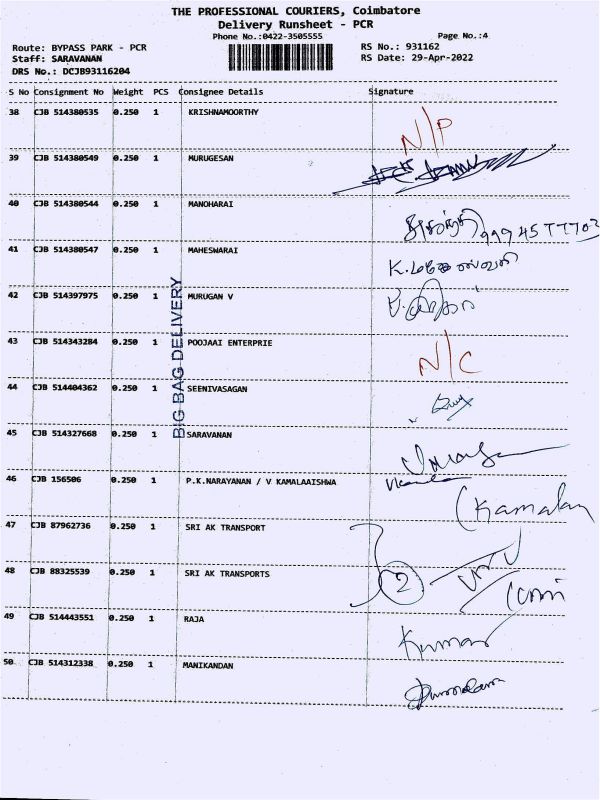 THE PROFESSIONAL COURIERS, Coimbatore
Delivery Runsheet - PCR
Phone No.:0422-3505555 Page No.:4
Route: BYPASS PARK - PCR RS No.: 931162
Staff: SARAVANAN RS Date: 29-Apr-2022
DRS No.: DCJB93116204
S No Consignment No Weight PCS Consignee Details Signature
38 CJB 514380535 0.250 1 KRISHNAMOORTHY
N/P
39 CJB 514380549 0.250 1 MURUGESAN
40 CJB 514380544 0.250 1 MANOHARAI
99945 77702
41 CJB 514380547 0.250 1 MAHESWARAI
K. மகேஸ்வரி
42 CJB 514397975 0.250 1 MURUGAN V
BIG BAG DELIVERY
43 CJB 514343284 0.250 1 POOJAAI ENTERPRIE
N/C
44 CJB 514404362 0.250 1 SEENIVASAGAN
45 CJB 514327668 0.250 1 SARAVANAN
46 CJB 156506 0.250 1 P.K.NARAYANAN / V KAMALAAISHWA
(Kamalav
47 CJB 87962736 0.250 1 SRI AK TRANSPORT
48 CJB 88325539 0.250 1 SRI AK TRANSPORTS
2
49 CJB 514443551 0.250 1 RAJA
Kumar
50 CJB 514312338 0.250 1 MANIKANDAN